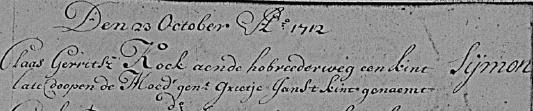 Den 23 October A.º 1712
Claas Gerritsz Kock aende hobreederweg een kint Sijmon
late doopen de Moed.r gen.t Grietje Jans t kint genaemt